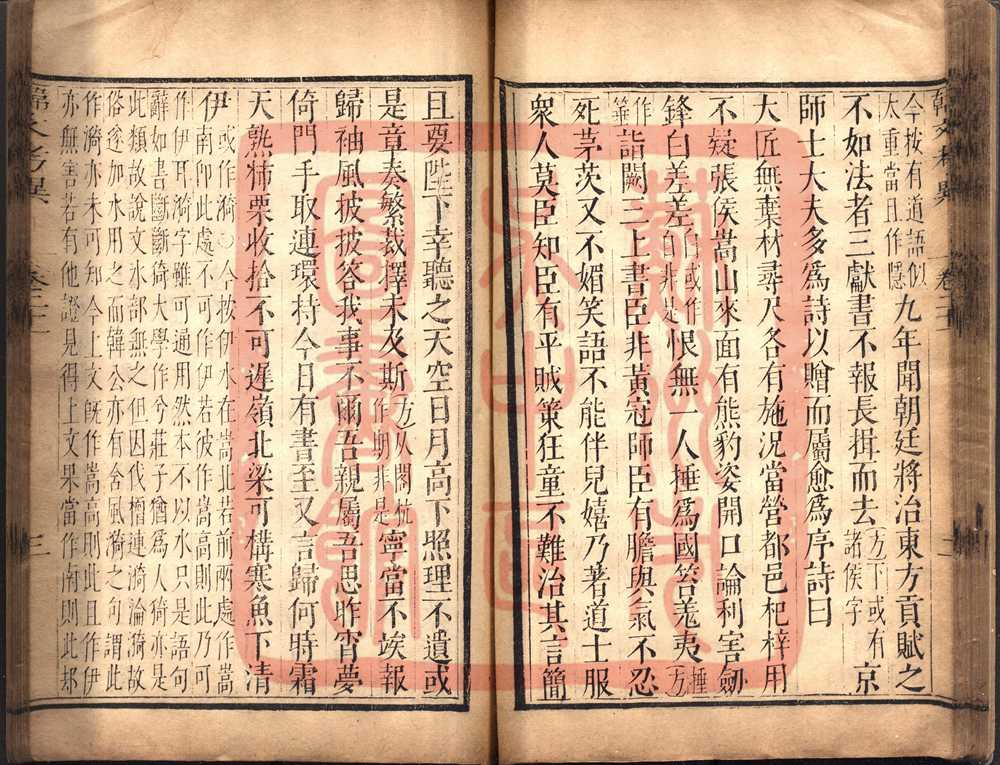 今按有道語似太重當且作隱九年聞朝廷將治東方貢賦之
不如法者三獻書不報長揖而去方下或有諸侯字京
師士大夫多爲詩以贈而屬愈爲序詩曰
大匠無棄材尋尺各有施況當營都邑杞梓用
不疑張侯嵩山來面有熊豹姿開口論利害劒
鋒白差差白或作的非是恨無一人捶爲國笞羌夷方捶
作箠詣闕三上書臣非黃冠師臣有膽與氣不忍
死茅茨又不媚笑語不能伴兒嬉乃著道士服
衆人莫臣知臣有平賊策狂童不難治其言簡
且要陛下幸聽之天空日月高下照理不遺或
是章奏繁裁擇未及斯方从閣杭作期非是寧當不竢報
歸袖風披披答我事不爾吾親屬吾思昨宵夢
倚門手取連環持今日有書至又言歸何時霜
天熟柿栗收拾不可遲嶺北梁可構寒魚下清
伊或作漪○今按伊水在嵩北若前兩處作嵩
南卽此處不可作伊若彼作嵩高則此乃可
作伊耳漪字雖可通用然本不以水只是語可
辭如書斷斷猗大學作兮莊子猶爲人猗亦是
此類故說文水部無之但因伐檀連漪論猗故
俗遂加水用之而韓公亦有含風漪之句謂此
作漪亦未可知今上文旣作嵩高則此且作伊
亦無害若有他證見得上文果當作南則此却